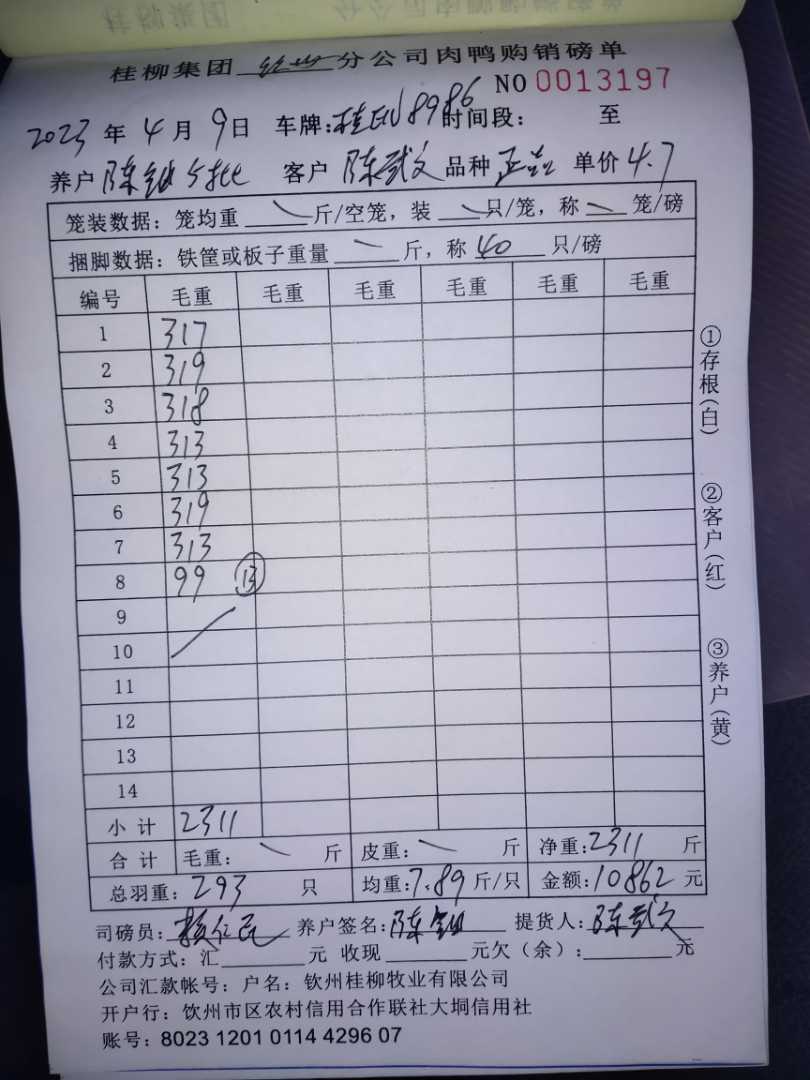 桂柳集团 钦州 分公司肉鸭购销磅单
NO 0013197
2023 年 4 月 9 日 车牌: 8986 时间段: 至
养户 陈 5批 客户 陈武文 品种 正品 单价 4.7
笼装数据：笼均重 斤/空笼，装 只/笼，称 笼/磅
捆脚数据：铁筐或板子重量 斤，称 40 只/磅
编号 毛重 毛重 毛重 毛重 毛重 毛重
1 317
2 319
3 318
4 313
5 313
6 319
7 313
8 99 13
9
10
11
12
13
14
小计 2311
合计 毛重： 斤 皮重： 斤 净重：2311 斤
总羽重：293 只 均重：7.89 斤/只 金额：10862 元
司磅员： 养户签名：陈 提货人：陈武文
付款方式：汇 元 收现 元欠（余）： 元
公司汇款帐号：户名：钦州桂柳牧业有限公司
开户行：钦州市区农村信用合作联社大垌信用社
账号：8023 1201 0114 4296 07
①存根（白）
②客户（红）
③养户（黄）